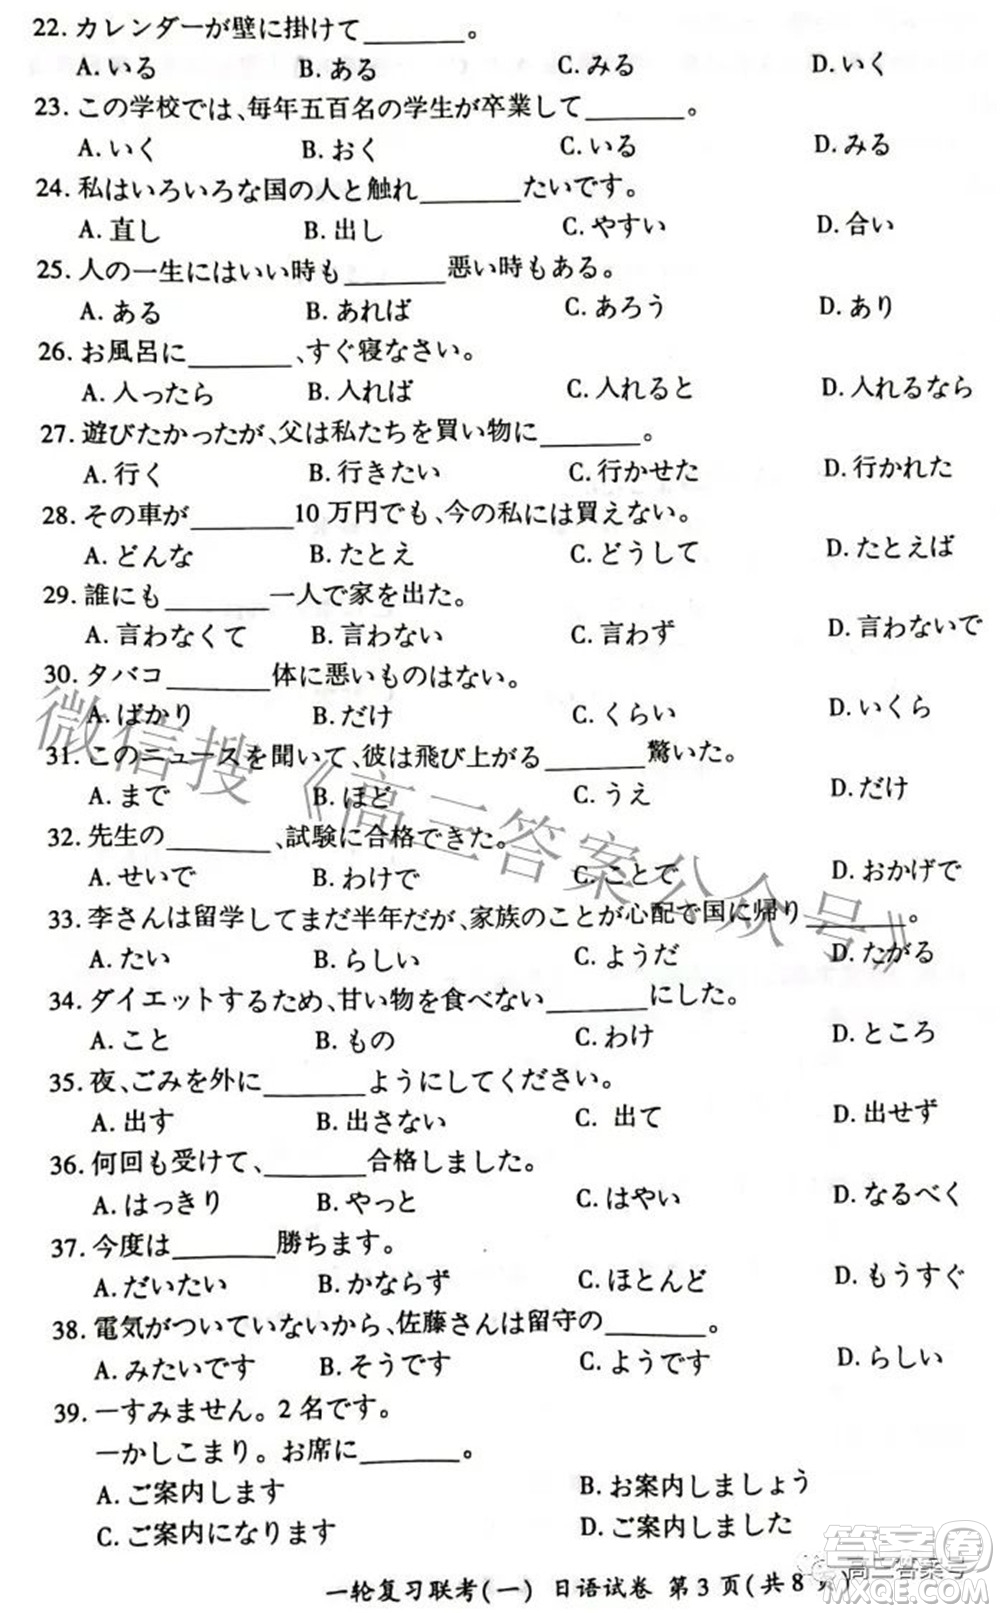 22. カレンダーが壁に掛けて______。
A. いる B. ある C. みる D. いく
23. この学校では、毎年五百名の学生が卒業して______。
A. いく B. おく C. いる D. みる
24. 私はいろいろな国の人と触れ______たいです。
A. 直し B. 出し C. やすい D. 合い
25. 人の一生にはいい時も______悪い時もある。
A. ある B. あれば C. あろう D. あり
26. お風呂に______、すぐ寝なさい。
A. 入ったら B. 入れば C. 入れると D. 入れるなら
27. 遊びたかったが、父は私たちを買い物に______。
A. 行く B. 行きたい C. 行かせた D. 行かれた
28. その車が______10万円でも、今の私には買えない。
A. どんな B. たとえ C. どうして D. たとえば
29. 誰にも______一人で家を出た。
A. 言わなくて B. 言わない C. 言わず D. 言わないで
30. タバコ______体に悪いものはない。
A. ばかり B. だけ C. くらい D. いくら
31. このニュースを聞いて、彼は飛び上がる______驚いた。
A. まで B. ほど C. うえ D. だけ
32. 先生の______、試験に合格できた。
A. せいで B. わけで C. ことで D. おかげで
33. 李さんは留学してまだ半年だが、家族のことが心配で国に帰り______。
A. たい B. らしい C. ようだ D. たがる
34. ダイエットするため、甘い物を食べない______にした。
A. こと B. もの C. わけ D. ところ
35. 夜、ごみを外に______ようにしてください。
A. 出す B. 出さない C. 出て D. 出せず
36. 何回も受けて、______合格しました。
A. はっきり B. やっと C. はやい D. なるべく
37. 今度は______勝ちます。
A. だいたい B. かならず C. ほとんど D. もうすぐ
38. 電気がついていないから、佐藤さんは留守の______。
A. みたいです B. そうです C. ようです D. らしい
39. ーすみません。2名です。
ーかしこまり。お席に______。
A. ご案内します B. お案内しましょう
C. ご案内になります D. ご案内しました
一轮复习联考(一) 日语试卷 第3页(共8页)
微信搜《高三答案公众号》
高三答案号
答案圈